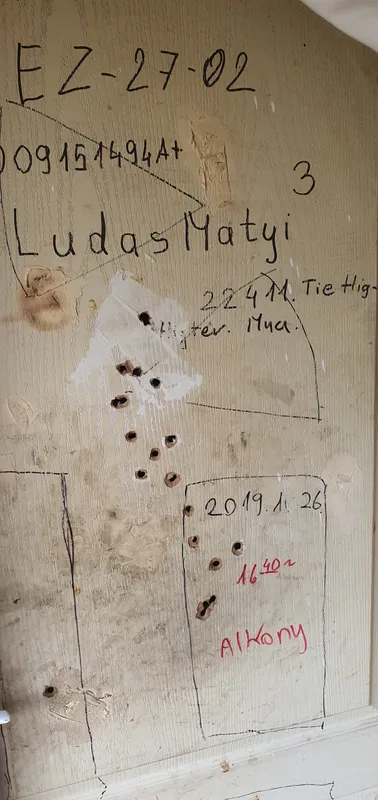 EZ-27-02
09151494A+
3
Ludas Matyi
22411. Tie Hig-
Higter. Mua.
2019.1.26
16 40~
Alkony